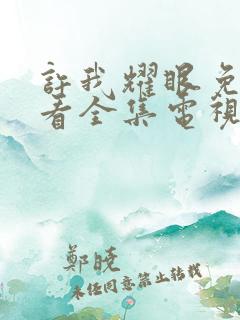 許我耀眼免
看全集電視
鄭曉
未經同意禁止轉載